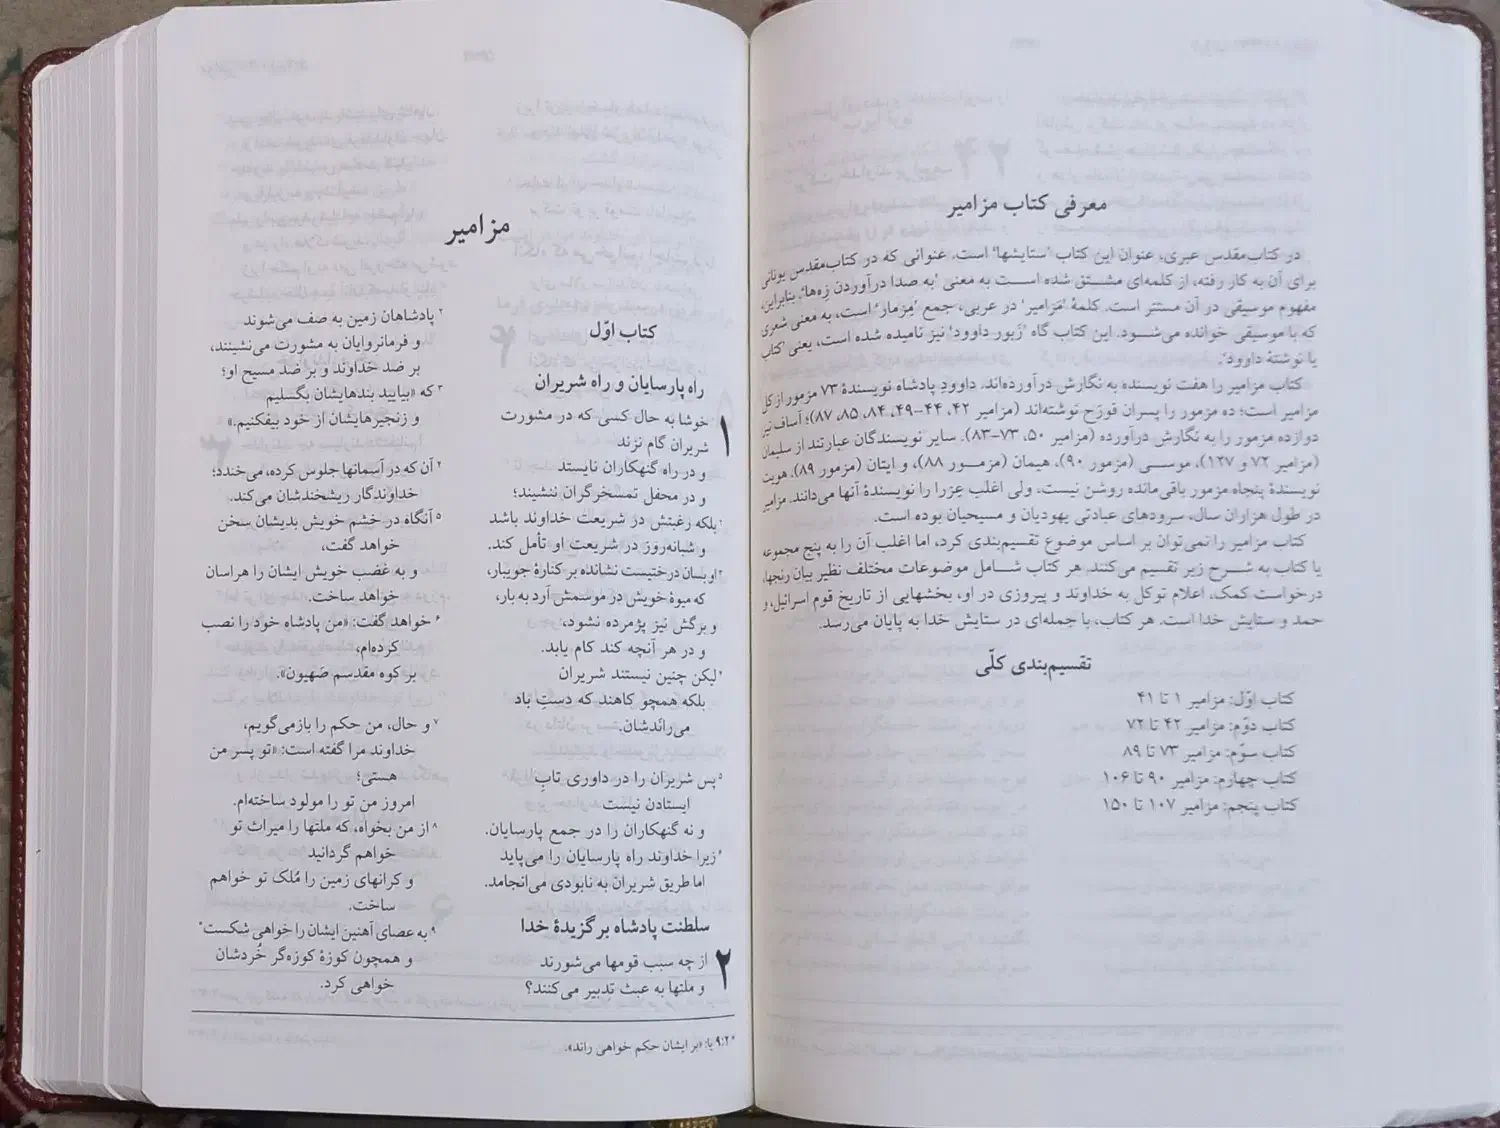 معرفی کتاب مزامیر
در کتاب‌مقدس عبری، عنوان این کتاب ’ستایشها‘ است. عنوانی که در کتاب‌مقدس یونانی
برای آن به کار رفته، از کلمه‌ای مشتق شده است به معنی ’به صدا درآوردن زِه‌ها‘. بنابراین،
مفهوم موسیقی در آن مستتر است. کلمهٔ ’مَزامیر‘ در عربی، جمع ’مِزمار‘ است، به معنی شعری
که با موسیقی خوانده می‌شود. این کتاب گاه ’زَبور داوود‘ نیز نامیده شده است، یعنی ’کتاب
یا نوشتهٔ داوود‘.
کتاب مزامیر را هفت نویسنده به نگارش درآورده‌اند. داوودِ پادشاه نویسندهٔ ۷۳ مزمور از کل
مزامیر است؛ ده مزمور را پسران قورَح نوشته‌اند (مزامیر ۴۲، ۴۴-۴۹، ۸۴، ۸۵، ۸۷)؛ آساف نیز
دوازده مزمور را به نگارش درآورده (مزامیر ۵۰، ۷۳-۸۳). سایر نویسندگان عبارتند از سلیمان
(مزامیر ۷۲ و ۱۲۷)، موسی (مزمور ۹۰)، هیمان (مزمور ۸۸)، و ایتان (مزمور ۸۹). هویت
نویسندهٔ پنجاه مزمور باقی‌مانده روشن نیست، ولی اغلب عِزرا را نویسندهٔ آنها می‌دانند. مزامیر
در طول هزاران سال، سرودهای عبادتی یهودیان و مسیحیان بوده است.
کتاب مزامیر را نمی‌توان بر اساس موضوع تقسیم‌بندی کرد، اما اغلب آن را به پنج مجموعه
یا کتاب به شرح زیر تقسیم می‌کنند. هر کتاب شامل موضوعات مختلف نظیر بیان رنجها،
درخواست کمک، اعلام توکل به خداوند و پیروزی در او، بخشهایی از تاریخ قوم اسرائیل، و
حمد و ستایش خدا است. هر کتاب، با جمله‌ای در ستایش خدا به پایان می‌رسد.
تقسیم‌بندی کلّی
کتاب اوّل: مزامیر ۱ تا ۴۱
کتاب دوّم: مزامیر ۴۲ تا ۷۲
کتاب سوّم: مزامیر ۷۳ تا ۸۹
کتاب چهارم: مزامیر ۹۰ تا ۱۰۶
کتاب پنجم: مزامیر ۱۰۷ تا ۱۵۰
مزامیر
کتاب اوّل
راه پارسایان و راه شریران
۱ خوشا به حال کسی که در مشورت
شریران گام نزند
و در راه گنهکاران نایستد
و در محفل تمسخرگران ننشیند؛
۲ بلکه رغبتش در شریعت خداوند باشد
و شبانه‌روز در شریعت او تأمل کند.
۳ او بسان درختیست نشانده بر کنارهٔ جویبار،
که میوهٔ خویش در موسمش آرد به بار،
و برگش نیز پژمرده نشود،
و در هر آنچه کند کام یابد.
۴ لیکن چنین نیستند شریران
بلکه همچو کاهند که دستِ باد
می‌رانَدشان.
۵ پس شریران را در داوری تابِ
ایستادن نیست
و نه گنهکاران را در جمع پارسایان.
۶ زیرا خداوند راه پارسایان را می‌پاید
اما طریق شریران به نابودی می‌انجامد.
سلطنت پادشاه برگزیدهٔ خدا
۲ از چه سبب قومها می‌شورند
و ملتها به عبث تدبیر می‌کنند؟
۲ پادشاهان زمین به صف می‌شوند
و فرمانروایان به مشورت می‌نشینند،
بر ضد خداوند و بر ضد مسیح او؛
۳ که «بیایید بندهایشان بگسلیم
و زنجیرهایشان از خود بیفکنیم.»
۴ آن که در آسمانها جلوس کرده، می‌خندد؛
خداوندگار ریشخندشان می‌کند.
۵ آنگاه در خشم خویش بدیشان سخن
خواهد گفت،
و به غضب خویش ایشان را هراسان
خواهد ساخت.
۶ خواهد گفت: «من پادشاه خود را نصب
کرده‌ام،
بر کوه مقدسم صَهیون».
۷ و حال، من حکم را بازمی‌گویم،
خداوند مرا گفته است: «تو پسر من
هستی؛
امروز من تو را مولود ساخته‌ام.
۸ از من بخواه، که ملتها را میراث تو
خواهم گردانید
و کرانهای زمین را مُلک تو خواهم
ساخت.
۹ به عصای آهنین ایشان را خواهی شکست*
و همچون کوزهٔ کوزه‌گر خُردشان
خواهی کرد.
* ۹:۲ یا: «بر ایشان حکم خواهی راند».